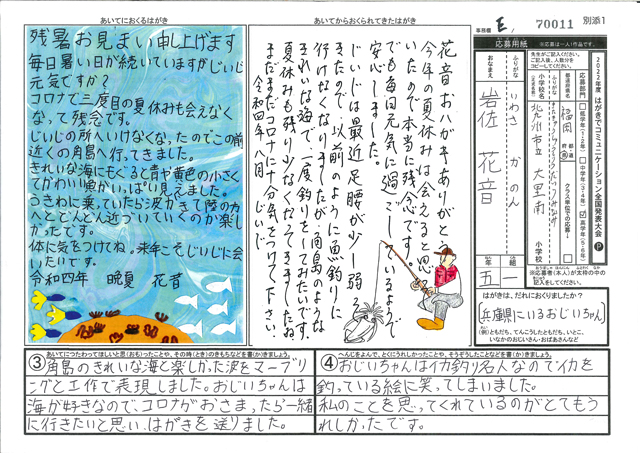 別添1
事務欄 E, 70011
あいてにおくるはがき
残暑お見まい申し上げます
毎日暑い日が続いていますがじいじ
元気ですか?
コロナで三度目の夏休みも会えなく
なって残念です。
じいじの所へいけなくなったのでこの前
近くの角島へ行ってきました。
きれいな海にもぐると青や黄色の小さく
てかわいい魚がいっぱい見えました。
うきわに乗っていたら波がきて岸の方
へとどんどん近づいていくのが楽し
かったです。
体に気をつけてね。来年こそじいじに会
いたいです。
令和四年 晩夏 花音
あいてからおくられてきたはがき
花音おハガキありがとう。
今年の夏休みは会えると思
いたので本当に残念です。
でも毎日元気に過ごしているようで
安心しました。
じいじは最近足腰が少し弱っ
たので以前のように魚釣りに
行けなくなりましたが、角島のような
きれいな海で一度釣りをしてみたいです。
夏休みも残り少なくなってきましたね。
まだまだコロナに十分気をつけて下さい。
令和四年八月 じいじ
応募用紙
※応募は一人1作品です。
先がご記入ください。
ご記入後、人数分を
コピーしてください。
2022年度 はがきでコミュニケーション全国発表大会 P
応募部門
低学年(1・2年)
中学年(3・4年)
高学年(5・6年)
都道府県名
福岡
都・道・府・県
クラス単位での応募
ふりがな
小学校名
(正式名称)
北九州市立 大里南
小学校
ふりがな いわさ かのん
おなまえ 岩佐 花音
五年 一組
※応募者(本人)が太枠の中の
記入をしてください。
はがきは、だれにおくりましたか?
(兵庫県にいるおじいちゃん)
(例)ともだち、てんこうしたともだち、いとこ、
いなかのおじいさん・おばあさんなど
③ あいてにつたわってほしいと思(おも)ったことや、その時(とき)のきもちなどを書(か)きましょう。
角島のきれいな海と楽しかった波をマーブリ
ングと工作で表現しました。おじいちゃんは
海が好きなので、コロナがおさまったら一緒
に行きたいと思い、はがきを送りました。
④ へんじをよんで、とくにうれしかったことや、そうぞうしたことなどを書(か)きましょう。
おじいちゃんはイカ釣り名人なのでイカを
釣っている絵に笑ってしまいました。
私のことを思ってくれているのがとてもう
れしかったです。